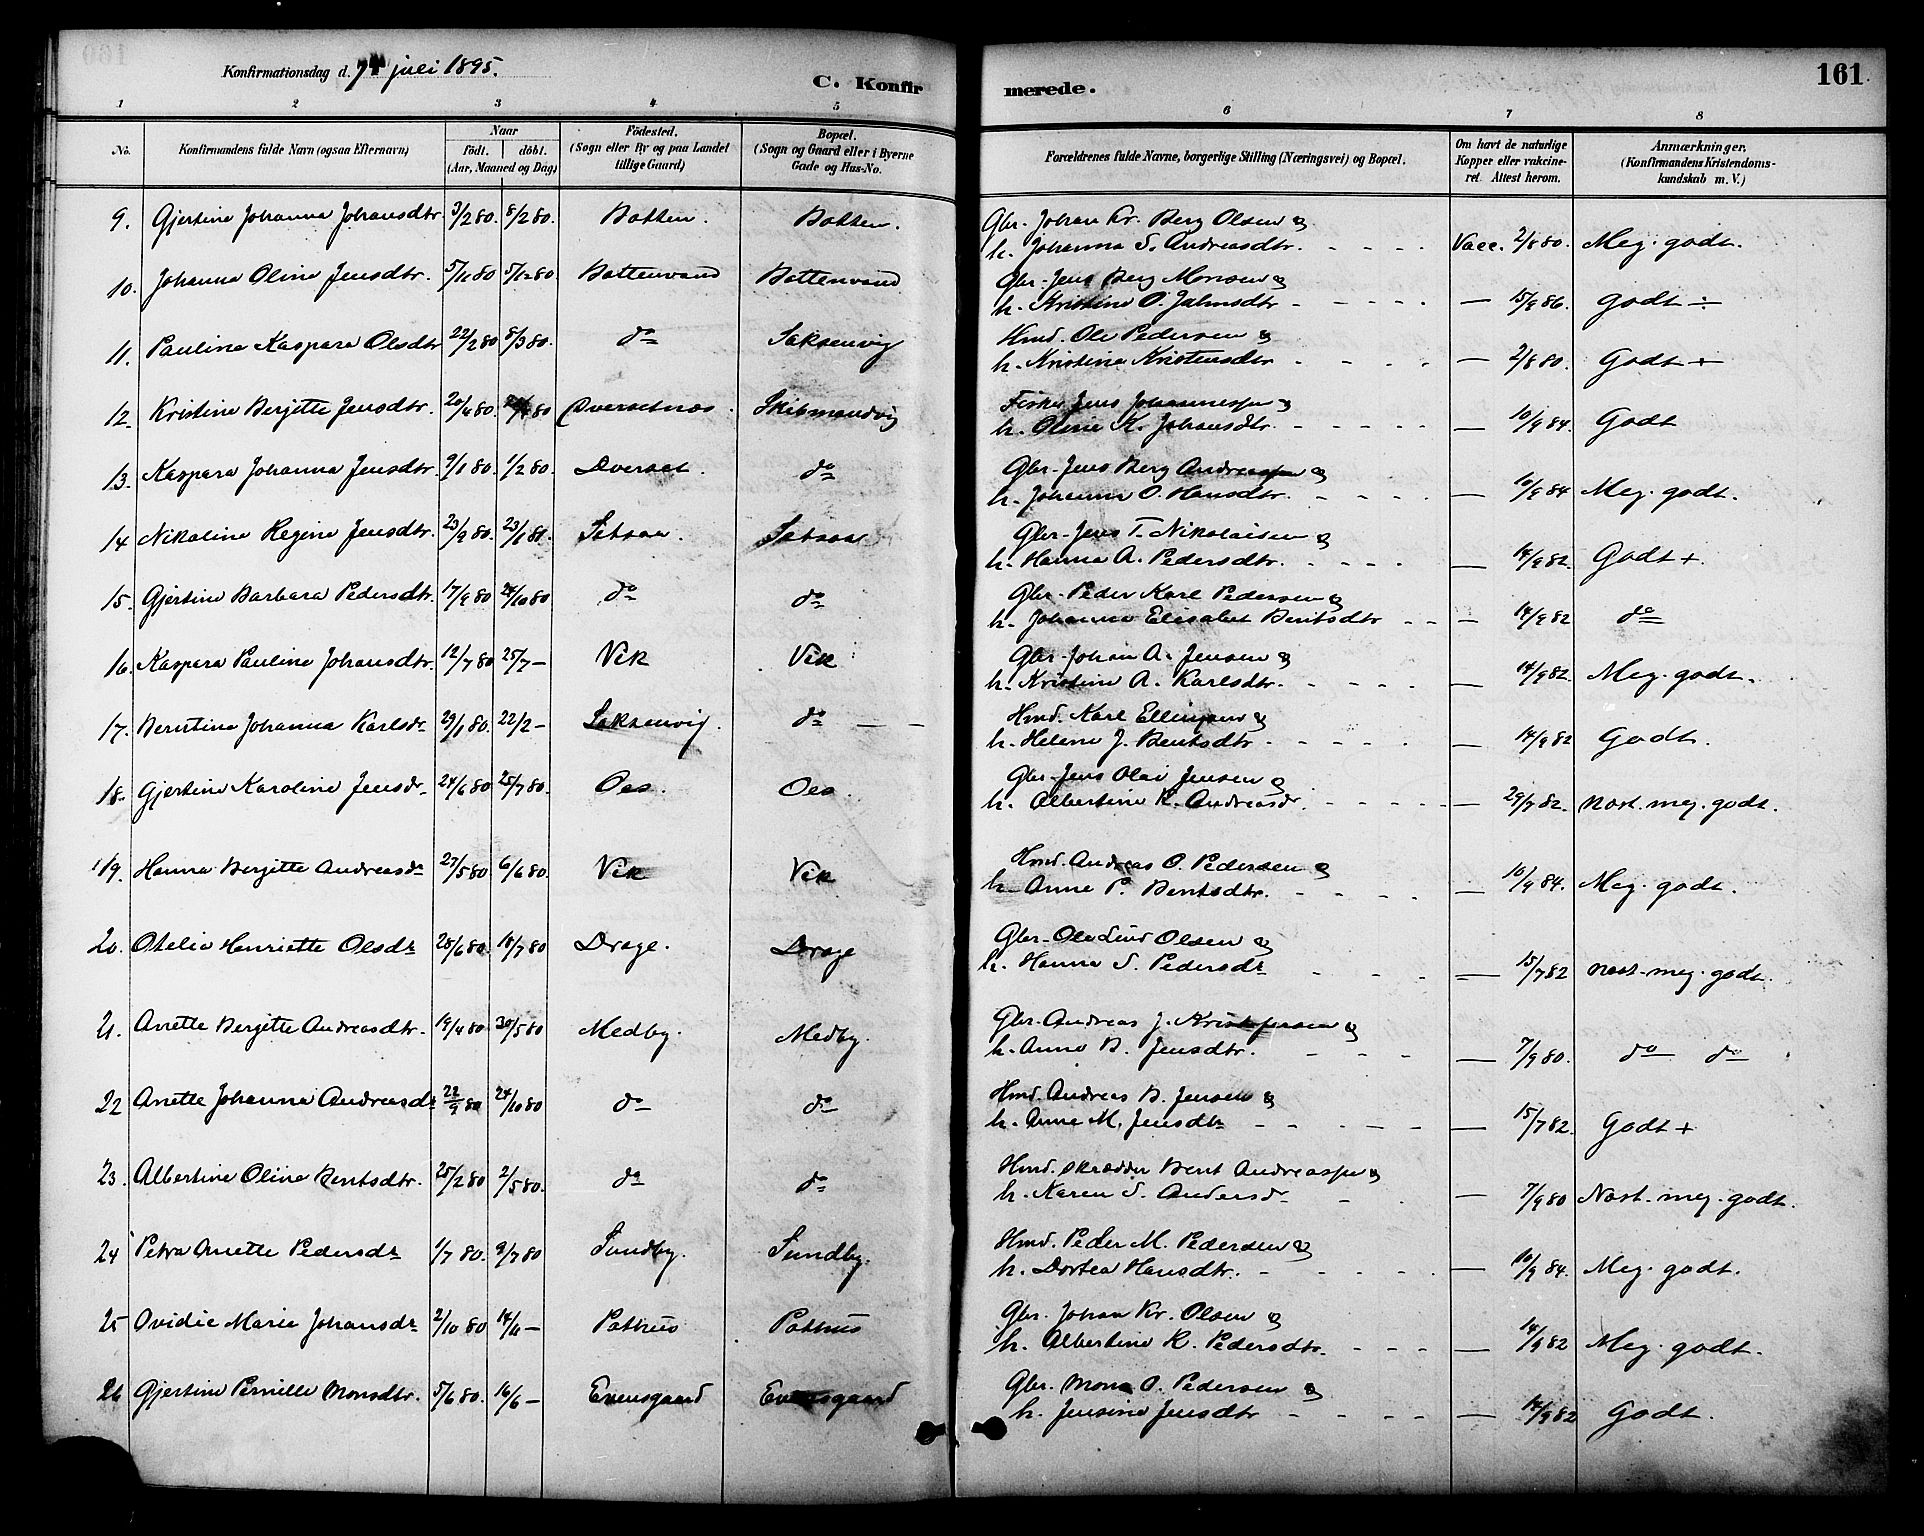 161
Konfirmationsdag d. 7 juli 1895.
C. Konfirmerede.
1 2 3 4 5 6 7 8
No. Konfirmandens fulde Navn (ogsaa Efternavn) Naar födt. döbt. (Aar, Maaned og Dag) Födested. (Sogn eller By og paa Landet tillige Gaard) Bopæl. (Sogn og Gaard eller i Byerne Gade og Hus-No. Forældrenes fulde Navne, borgerlige Stilling (Næringsvei) og Bopæl. Om havt de naturlige Kopper eller vakcineret. Attest herom. Anmærkninger. (Konfirmandens Kristendomskundskab m. V.)
9. Gjertine Johanna Johansdtr 3/2 80. 8/2 80. Botten. Botten. Gbr. Johan Kr. Berg Olsen og
h. Johanna S. Andreasdtr. Vacc. 2/8 80. Meg. godt.
10. Johanna Oline Jensdtr. 5/11 80 5/12 80 Bottenvand Bottenvand Gbr. Jens Berg Monsen og
h. Kristine O. Jakobsdtr — 15/9 86. Godt ÷
11. Pauline Kaspara Olsdtr 22/2 80 8/3 80. do Saksenvig Hmd. Ole Pedersen og
h. Kristina Kristensdtr — 2/8 80. Godt +
12. Kristine Bergitte Jensdtr. 20/4 80. Dversetnes. Skibmandvig Fisker Jens Johannessen og
h. Oline K. Johansdtr. — 10/9 84. Godt
13. Kaspara Johanna Jensdtr. 9/1 80. 1/2 80. Dverset. do Gbr. Jens Berg Andreassen og
h. Johanna O. Hansdtr. — 10/9 84 Meg. godt.
14 Nikoline Regine Jensdtr. 23/9 80. 23/1 81. Setsaa. Setsaa Gbr. Jens T. Nikolaisen og
h. Hanna A. Pedersdtr. — 14/9 82. Godt +.
15. Gjertine Barbara Pedersdtr. 17/9 80 24/10 80 do do Gbr. Peder Karl Pedersen og
h. Johanna Elisabet Bentsdtr — 14/9 82 do
16. Kaspara Pauline Johansdtr. 12/7 80 25/7 — Vik Vik Gbr. Johan A. Jensen og
h. Kristine A. Karlsdtr. — 14/9 82. Meg. godt.
17. Berntine Johanna Karlsdr 29/1 80. 22/2 — Saksenvig. do — — Hmd. Karl Ellingsen og
h. Helene J. Bentsdtr — 14/9 82 Godt.
18. Gjertine Karoline Jensdr. 24/6 80 25/7 80. Oes. Oes. Gbr. Jens Olai Jensen og
h. Albertine K. Andreasdr. — 29/7 82. Næst. meg. godt.
19. Hanna Bergitte Andreasdr 27/5 80 6/6 80. Vik Vik Hmd. Andreas O. Pedersen og
h. Anne P. Bentsdtr. — 10/9 84. Meg. godt.
20. Otelie Henriette Olsdr 28/6 80. 18/7 80 Drage. Drage Gbr. Ole Lind Olsen og
h. Hanna S. Pedersdr — 15/7 82 næst. meg. godt.
21. Anette Bergitte Andreasdtr. 19/4 80. 30/5 80 Medby. Medby. Gbr. Andreas J. Kristofersen og
h. Anne B. Jensdtr. — 7/9 80. do do
22 Anette Johanna Andreasdr 22/9 80 24/10 80 do do Hmd. Andreas B. Jensen og
h. Anne M. Jensdtr — 15/7 82. Godt +
23. Albertine Oline Bentsdtr. 25/2 80 2/5 80. do do Hmd. skrædder Bent Andreassen og
h. Karen S. Andersdr — 7/9 80 Næst. meg. godt.
24 Petra Anette Pedersdr 1/7 80. 9/7 80 Sundby. Sundby. Hmd. Peder M. Pedersen og
h. Dortea Hansdtr. — 10/9 84. Meg. godt.
25 Ovidie Marie Johansdr 2/10 80 14/11 — Pothus Pothus Gbr. Johan Kr. Olsen og
h. Albertine K. Pedersdtr. — 14/9 82 Meg. godt.
26 Gjertine Pernille Monsdtr. 5/6 80. 16/6 — Evensgaard Evensgaard Gbr. Mons O. Pedersen og
h. Jensine Jensdtr — 14/9 82 Godt.